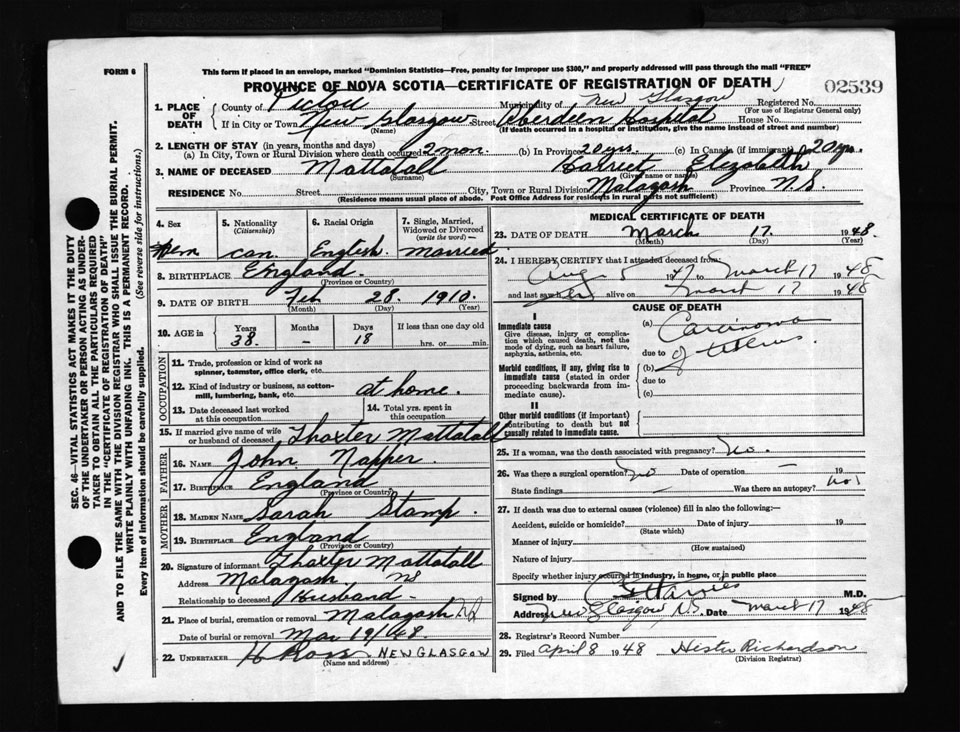 FORM 6
This form if placed in an envelope, marked "Dominion Statistics—Free, penalty for improper use $300," and properly addressed will pass through the mail "FREE"
PROVINCE OF NOVA SCOTIA—CERTIFICATE OF REGISTRATION OF DEATH
02539
1. PLACE OF DEATH
County of Pictou Municipality of New Glasgow Registered No.
(For use of Registrar General only)
If in City or Town New Glasgow Street Aberdeen Hospital House No.
(Name) (If death occurred in a hospital or institution, give the name instead of street and number)
2. LENGTH OF STAY (in years, months and days)
(a) In City, Town or Rural Division where death occurred 2 mon. (b) In Province 20 yrs. (c) In Canada (if immigrant) 20 yrs.
3. NAME OF DECEASED Mattatall Harriet Elizabeth
(Surname) (Given name or names)
RESIDENCE No. Street City, Town or Rural Division Malagash Province N.S.
(Residence means usual place of abode. Post Office Address for residents in rural parts not sufficient)
4. Sex Fem
5. Nationality (Citizenship) Can.
6. Racial Origin English
7. Single, Married, Widowed or Divorced (write the word) Married
8. BIRTHPLACE England
(Province or Country)
9. DATE OF BIRTH Feb 28 1910
(Month) (Day) (Year)
10. AGE in Years 38 Months - Days 18 If less than one day old hrs. or min.
OCCUPATION
11. Trade, profession or kind of work as spinner, teamster, office clerk, etc.
12. Kind of industry or business, as cotton-mill, lumbering, bank, etc. at home.
13. Date deceased last worked at this occupation
14. Total yrs. spent in this occupation
15. If married give name of wife or husband of deceased Thaxter Mattatall
FATHER
16. NAME John Napper
17. Birthplace England
(Province or Country)
MOTHER
18. MAIDEN NAME Sarah Stamp
19. BIRTHPLACE England
(Province or Country)
20. Signature of informant Thaxter Mattatall
Address Malagash, NS
Relationship to deceased Husband
21. Place of burial, cremation or removal Malagash NS
Date of burial or removal Mar 19/48
22. UNDERTAKER H Ross NEW GLASGOW
(Name and address)
MEDICAL CERTIFICATE OF DEATH
23. DATE OF DEATH March 17. 1948.
(Month) (Day) (Year)
24. I HEREBY CERTIFY that I attended deceased from:
Aug 5 1947 to March 17 1948
and last saw h er alive on March 17 1948
CAUSE OF DEATH
I
Immediate cause
Give disease, injury or complication which caused death, not the mode of dying, such as heart failure, asphyxia, asthenia, etc.
(a) Carcinoma
due to of uterus.
Morbid conditions, if any, giving rise to immediate cause (stated in order proceeding backwards from immediate cause).
(b)
due to
(c)
II
Other morbid conditions (if important) contributing to death but not causally related to immediate cause.
25. If a woman, was the death associated with pregnancy? No.
26. Was there a surgical operation? No Date of operation — 19
State findings — Was there an autopsy? no
27. If death was due to external causes (violence) fill in also the following:—
Accident, suicide or homicide? Date of injury 19
(State which)
Manner of injury
(How sustained)
Nature of injury
Specify whether injury occurred in industry, in home, or in public place
Signed by M.D.
Address New Glasgow N.S. Date March 17 1948
28. Registrar's Record Number
29. Filed April 8 1948 Hester Richardson
(Division Registrar)
SEC. 46—VITAL STATISTICS ACT MAKES IT THE DUTY
OF THE UNDERTAKER OR PERSON ACTING AS UNDER-
TAKER TO OBTAIN ALL THE PARTICULARS REQUIRED
IN THE "CERTIFICATE OF REGISTRATION OF DEATH"
AND TO FILE THE SAME WITH THE DIVISION REGISTRAR WHO SHALL ISSUE THE BURIAL PERMIT.
WRITE PLAINLY WITH UNFADING INK. THIS IS A PERMANENT RECORD.
Every item of information should be carefully supplied. (See reverse side for instructions.)